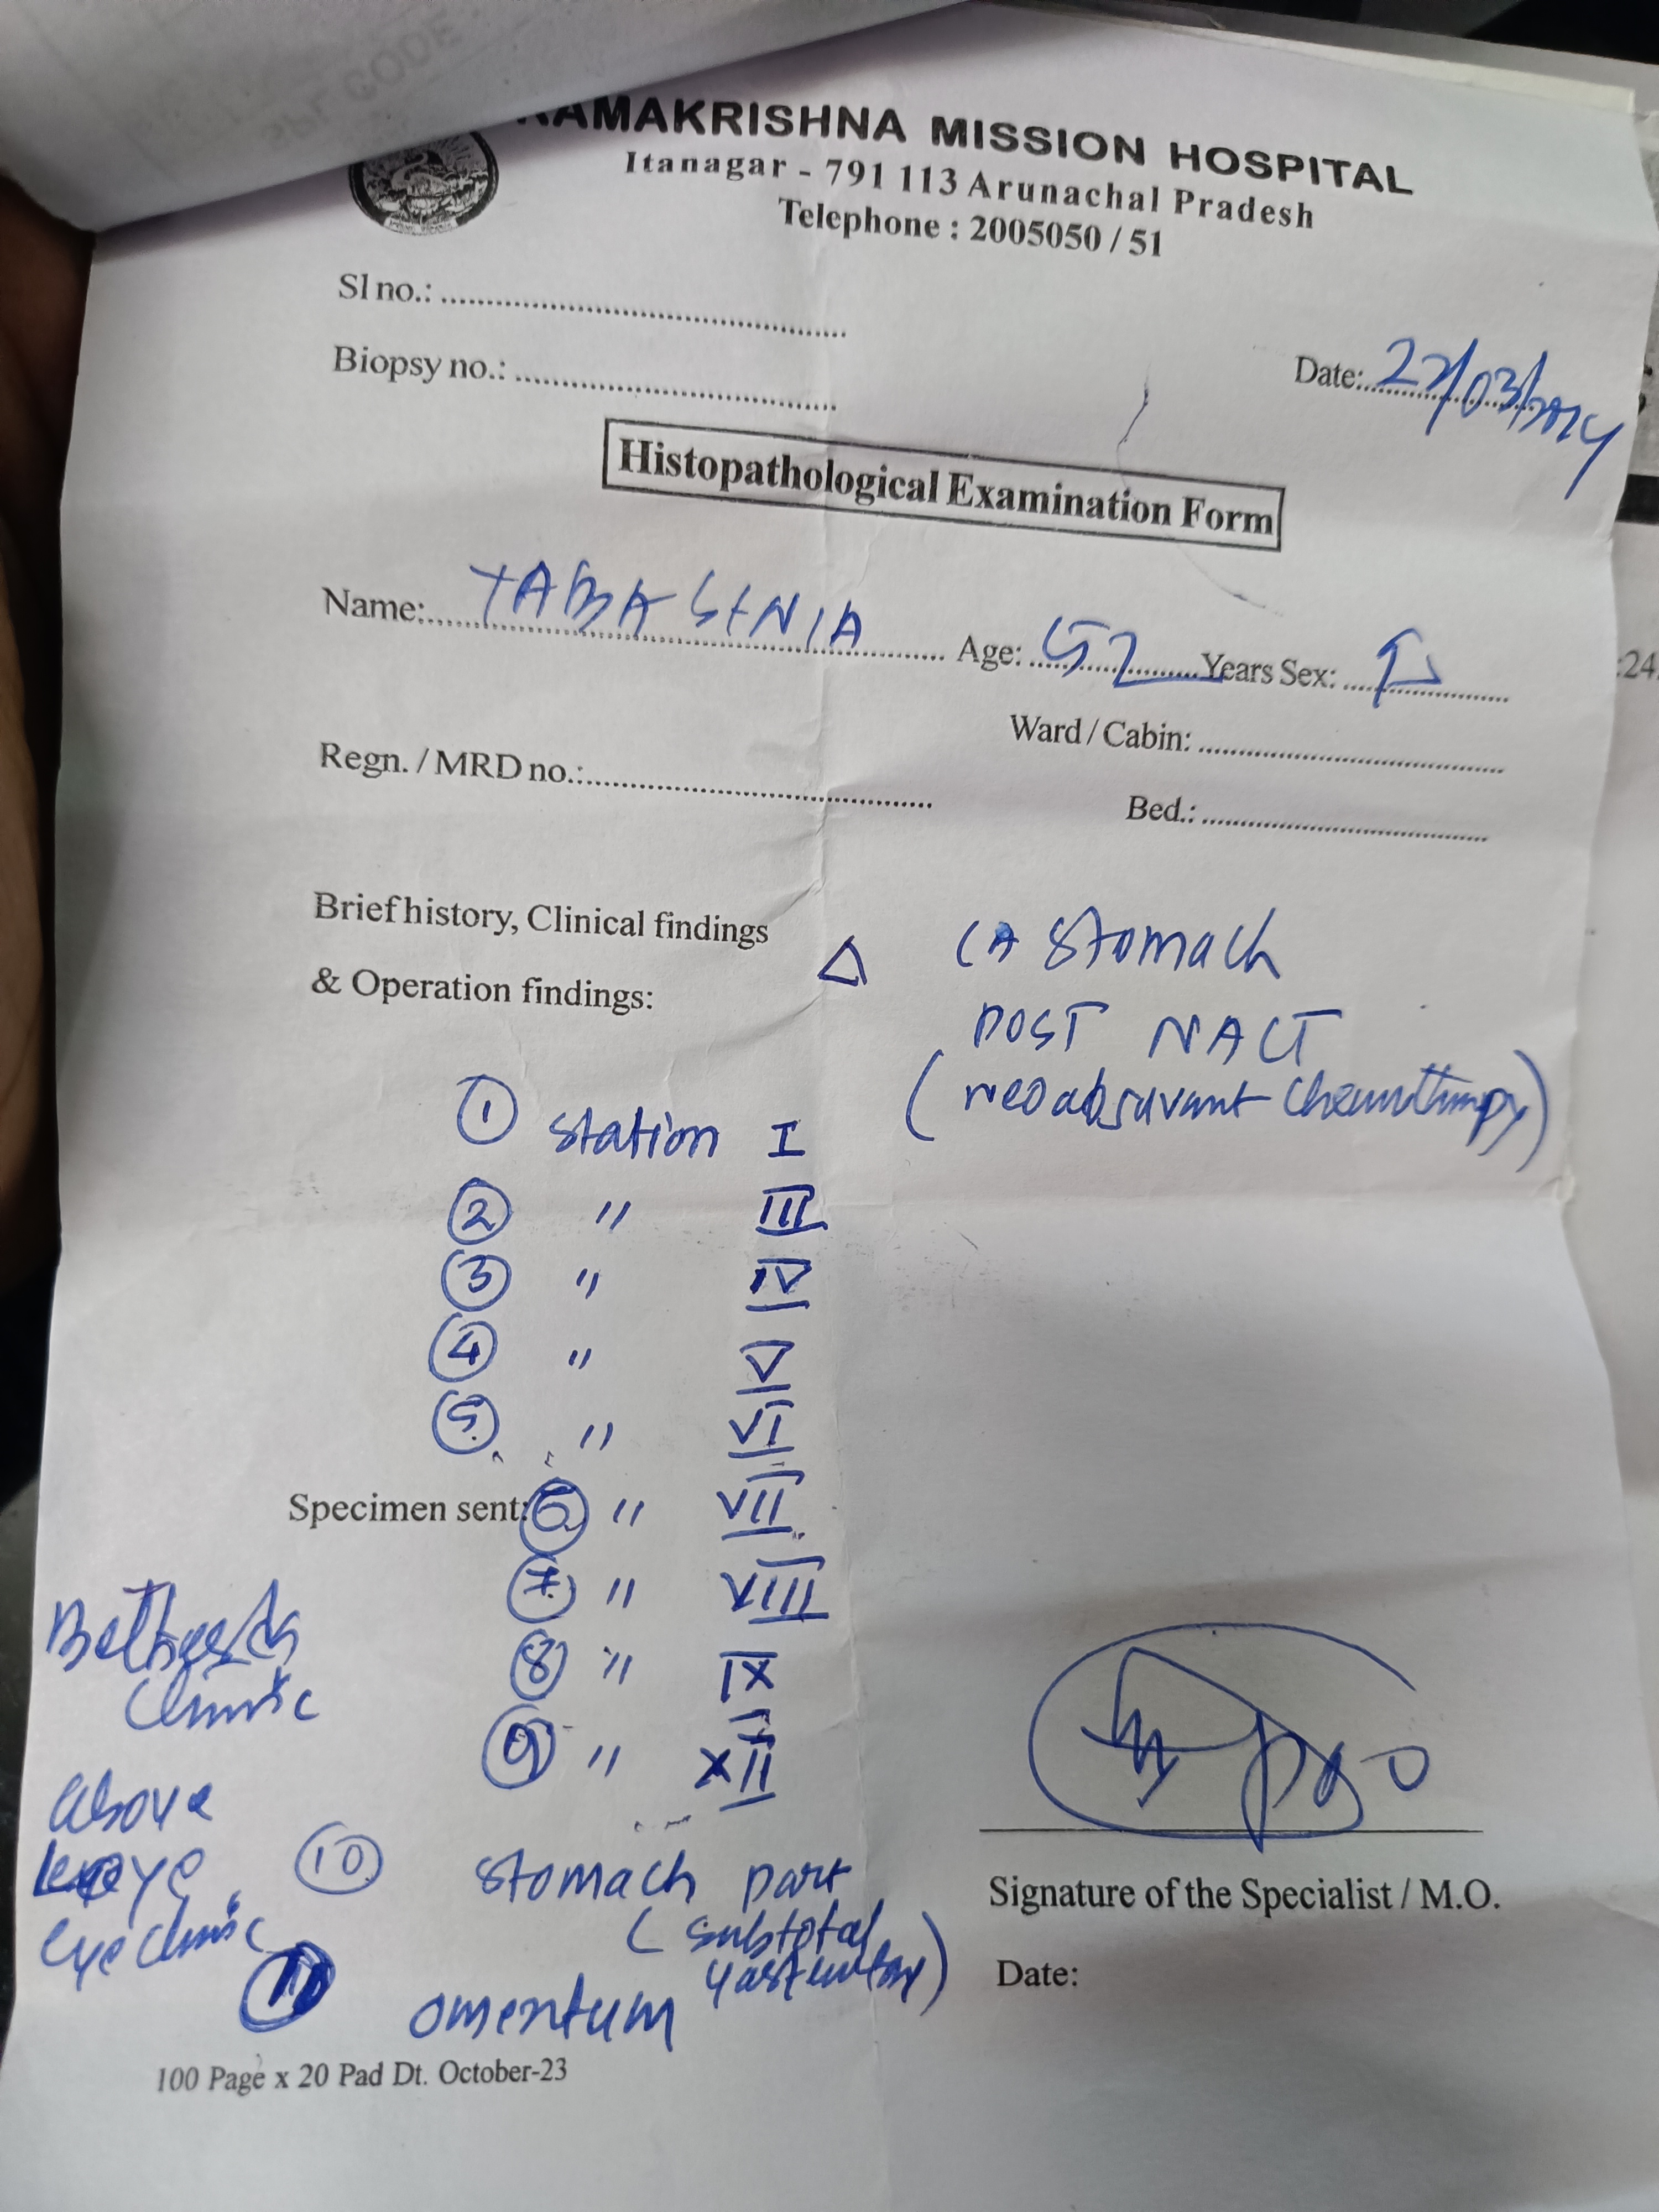 RAMAKRISHNA MISSION HOSPITAL
Itanagar - 791 113 Arunachal Pradesh
Telephone : 2005050 / 51
Sl no.:
Biopsy no.:
Date: 22/03/2024
Histopathological Examination Form
Name: TABA SENIA Age: 52 Years Sex:
Regn. / MRD no.:
Ward / Cabin:
Bed.:
Brief history, Clinical findings
& Operation findings:
Δ CA stomach
POST NACT
(neoadjuvant chemotherapy)
1 station I
2 " III
3 " IV
4 " V
5 " VI
Specimen sent: 6 " VII
7 " VIII
8 " IX
9 " XII
10 stomach part
(subtotal
gastrectomy)
11 omentum
Bethesda
Clinic
above
eye clinic
Signature of the Specialist / M.O.
Date:
100 Page x 20 Pad Dt. October-23